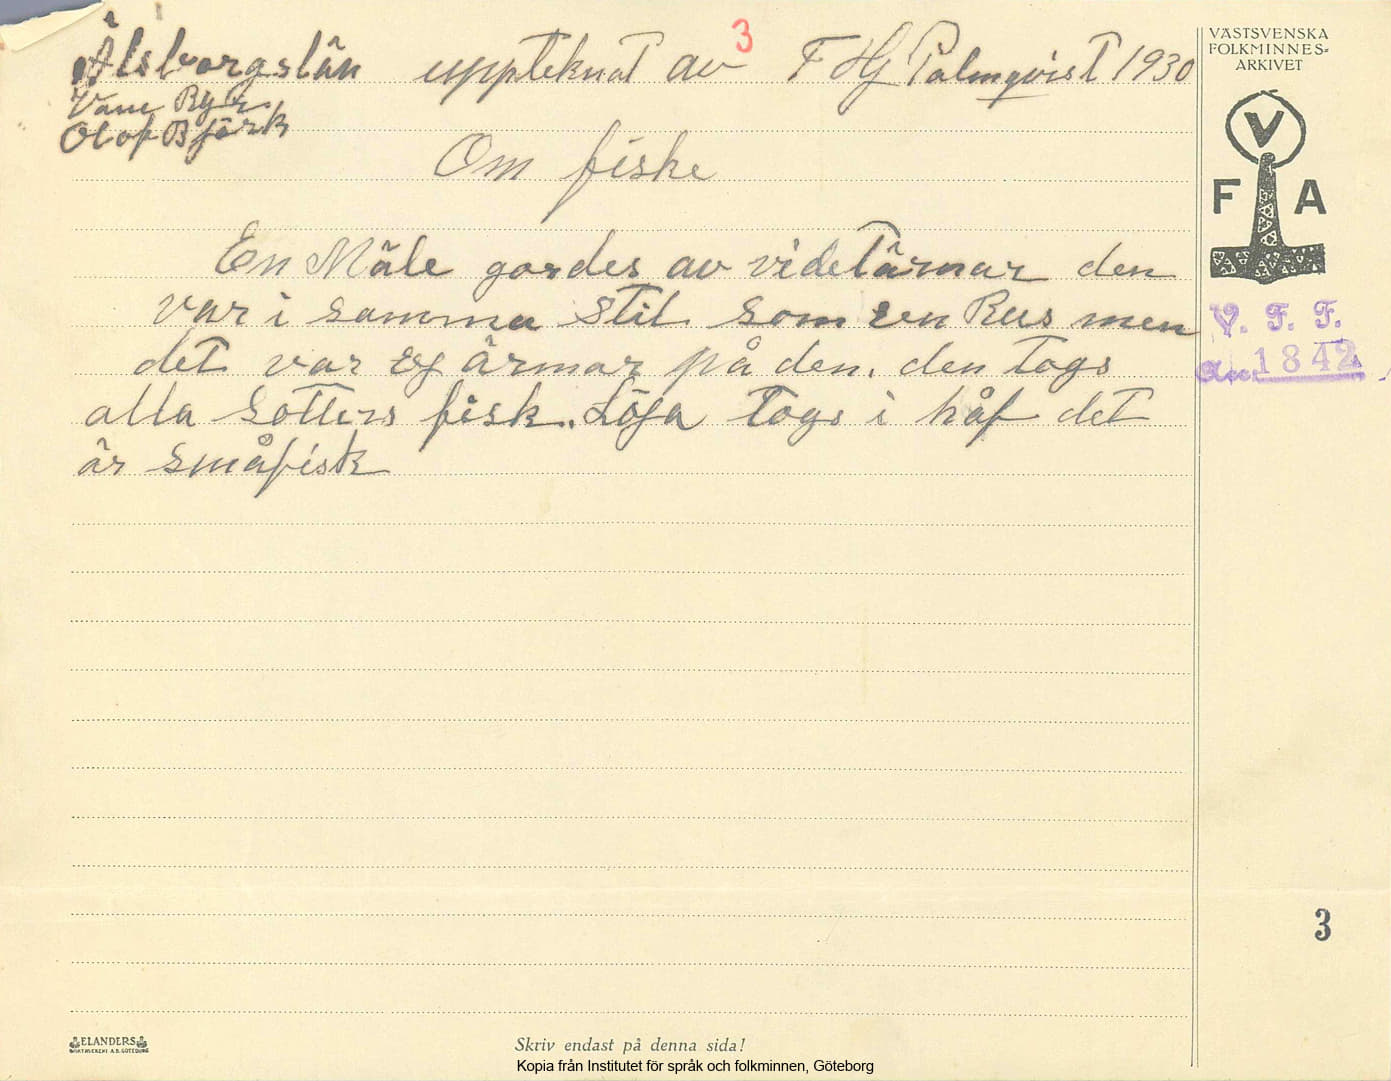 3
Älsborgslän uppteknat av F Hj Palmqvist 1930
Väne Ryr
Olof Björk
Om fiske
En Mäle gordes av videtärnar den
var i samma stil som en Rus men
det var Ej ärmar på den. den togs
alla sotters fisk. Löja togs i håf det
är småfisk
VÄSTSVENSKA
FOLKMINNES=
ARKIVET
V
F A
V. F. F.
Acc. 1842
3
ELANDERS
BOKTRYCKERI A.B. GÖTEBORG
Skriv endast på denna sida!
Kopia från Institutet för språk och folkminnen, Göteborg